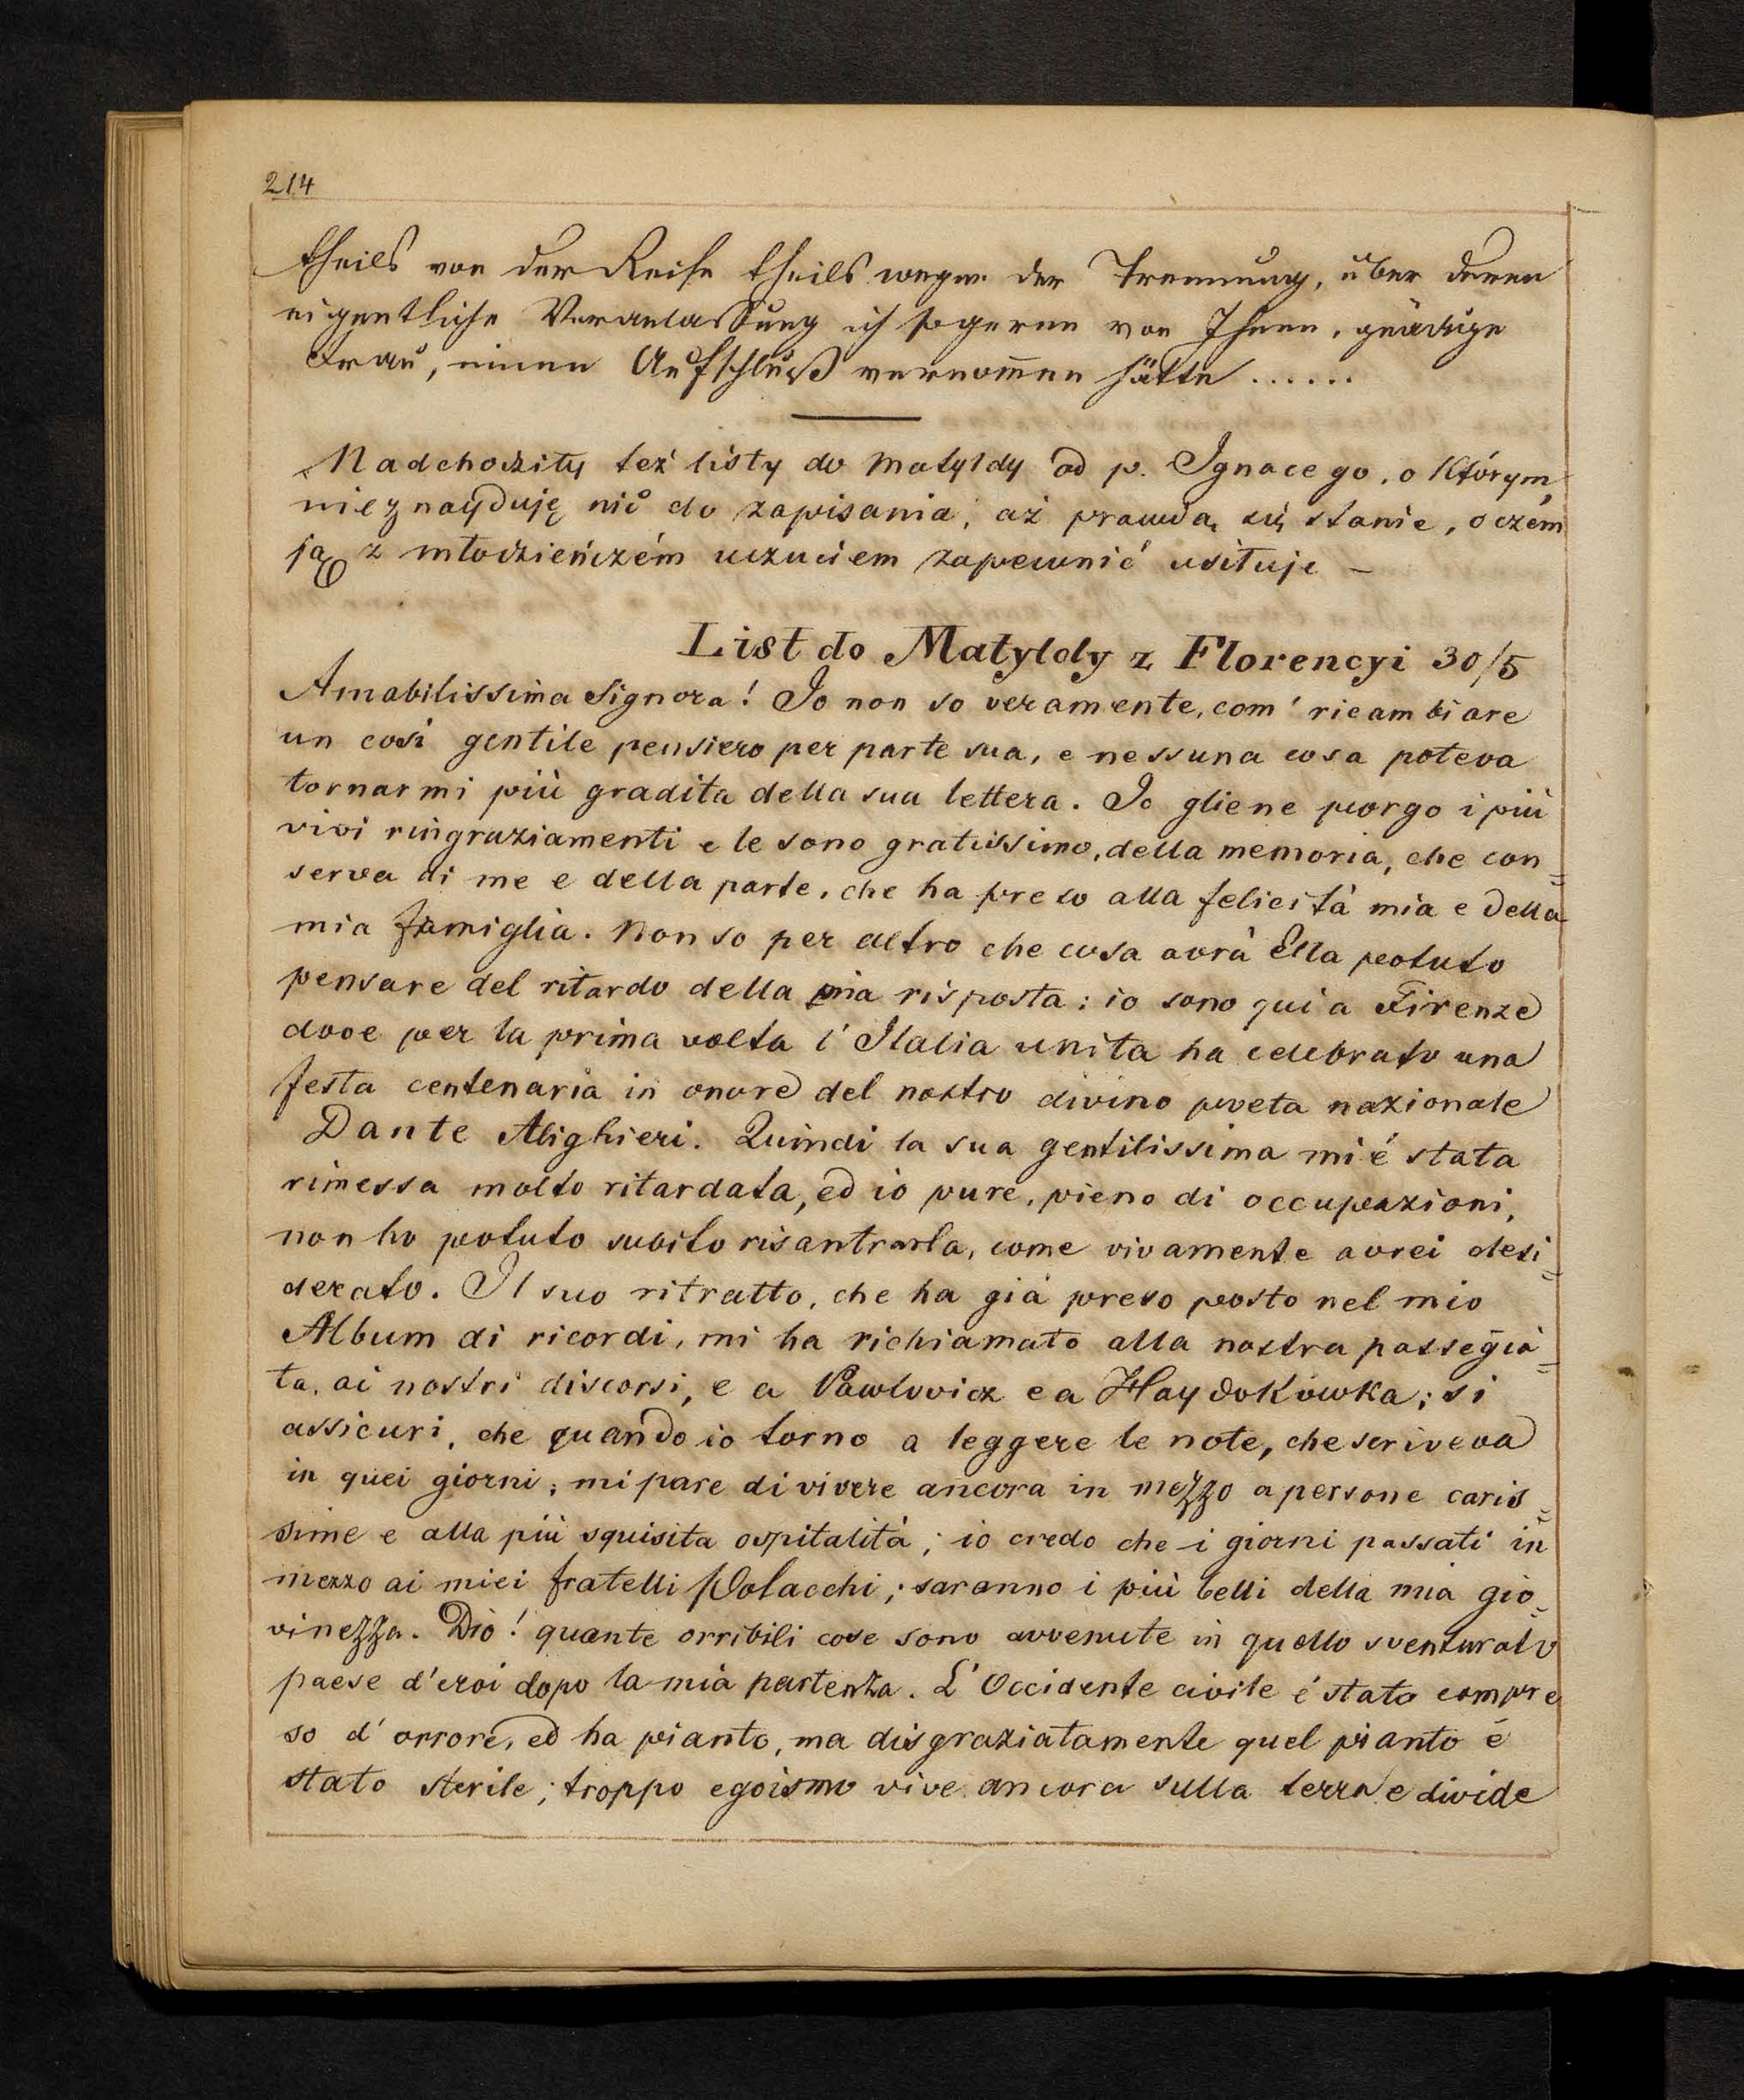 214
theils von der Reise theils wegen der Trennung, über deren
eigentliche Veranlassung ich so gerne von Ihnen, gnädige
Frau, einen Aufschluß vernom̅en hätte ......
Nadchodziły też listy do Matyldy od p. Ignacego, o którym,
nie znayduję nic do zapisania, aż prawdą się stanie, o czém
ją z młodzieńczém uczuciem zapewnić usiłuje –
List do Matyldy z Florencyi 30/5
Amabilissima Signora! Io non so veramente, com' ricambiare
un cosi gentile pensiero per parte sua, e nessuna cosa poteva
tornarmi più gradita della sua lettera. Io gliene porgo i più
vivi ringraziamenti e le sono gratissimo, della memoria, che con=
serva di me e della parte, che ha preso alla felicità mia e della
mia famiglia. Non so per altro che cosa avrà Ella potuto
pensare del ritardo della mia risposta: io sono qui a Firenze
dove per la prima volta l'Italia unita ha celebrato una
festa centenaria in onore del nostro divino poeta nazionale
Dante Alighieri. Quindi la sua gentilissima mi é stata
rimessa molto ritardata, ed io pure, pieno di occupazioni,
non ho potuto subito risantrarla, come vivamente avrei desi=
derato. Il suo ritratto, che ha già preso posto nel mio
Album di ricordi, mi ha richiamato alla nostra passegià=
ta, ai nostri discorsi, e a Pawłowicz e a Haydokówka; si
assicuri, che quando io torno a leggere le note, che scriveva
in quei giorni; mi pare di vivere ancora in mezzo a persone caris=
sime e alla più squisita ospitalità; io credo che i giorni passati in
mezzo ai miei fratelli Polacchi; saranno i più belli della mia gio=
vinezza. Dio! quante orribili cose sono avvenute in quello sventurato
paese d'eroi dopo la mia partenza. L'Occidente civile é stato compre
so d'orrore, ed ha pianto, ma disgraziatamente quel pianto é
stato sterile; troppo egoismo vive ancora sulla terra e divide